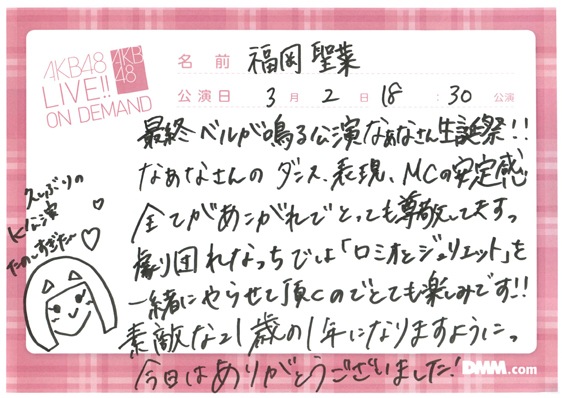 AKB48
LIVE!!
ON DEMAND
AKB
48
名前 福岡聖菜
公演日 3月2日 18:30 公演
最終ベルが鳴る公演なぁなさん生誕祭!!
なぁなさんのダンス、表現、MCの安定感
全てがあこがれでとっても尊敬してますっ
劇団れなっちでは「ロミオとジュリエット」を
一緒にやらせて頂くのでとても楽しみです!!
素敵な21歳の1年になりますようにっ
今日はありがとうございました!
久しぶりの
K公演
たのしすぎたー
DMM.com